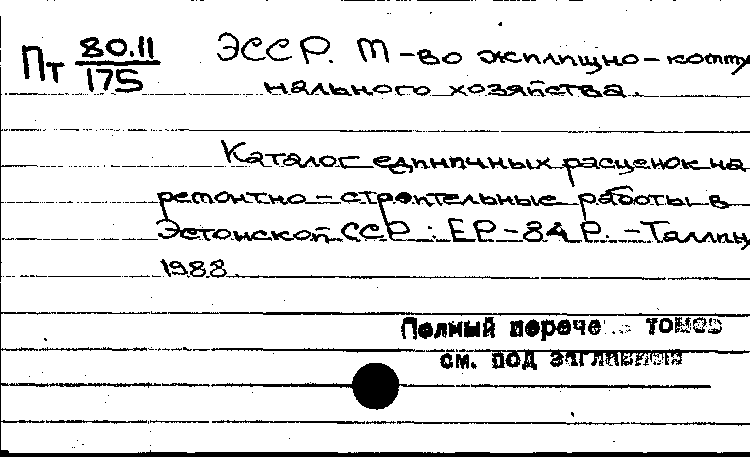 Пт 80.11/175 ЭССР. М-во жилищно-комму
нального хозяйства.
Каталог единичных расценок на
ремонтно-строительные работы в
Эстонской ССР : ЕР-84 Р. - Таллин,
1988.
Полный перече томов
см. под заглавием